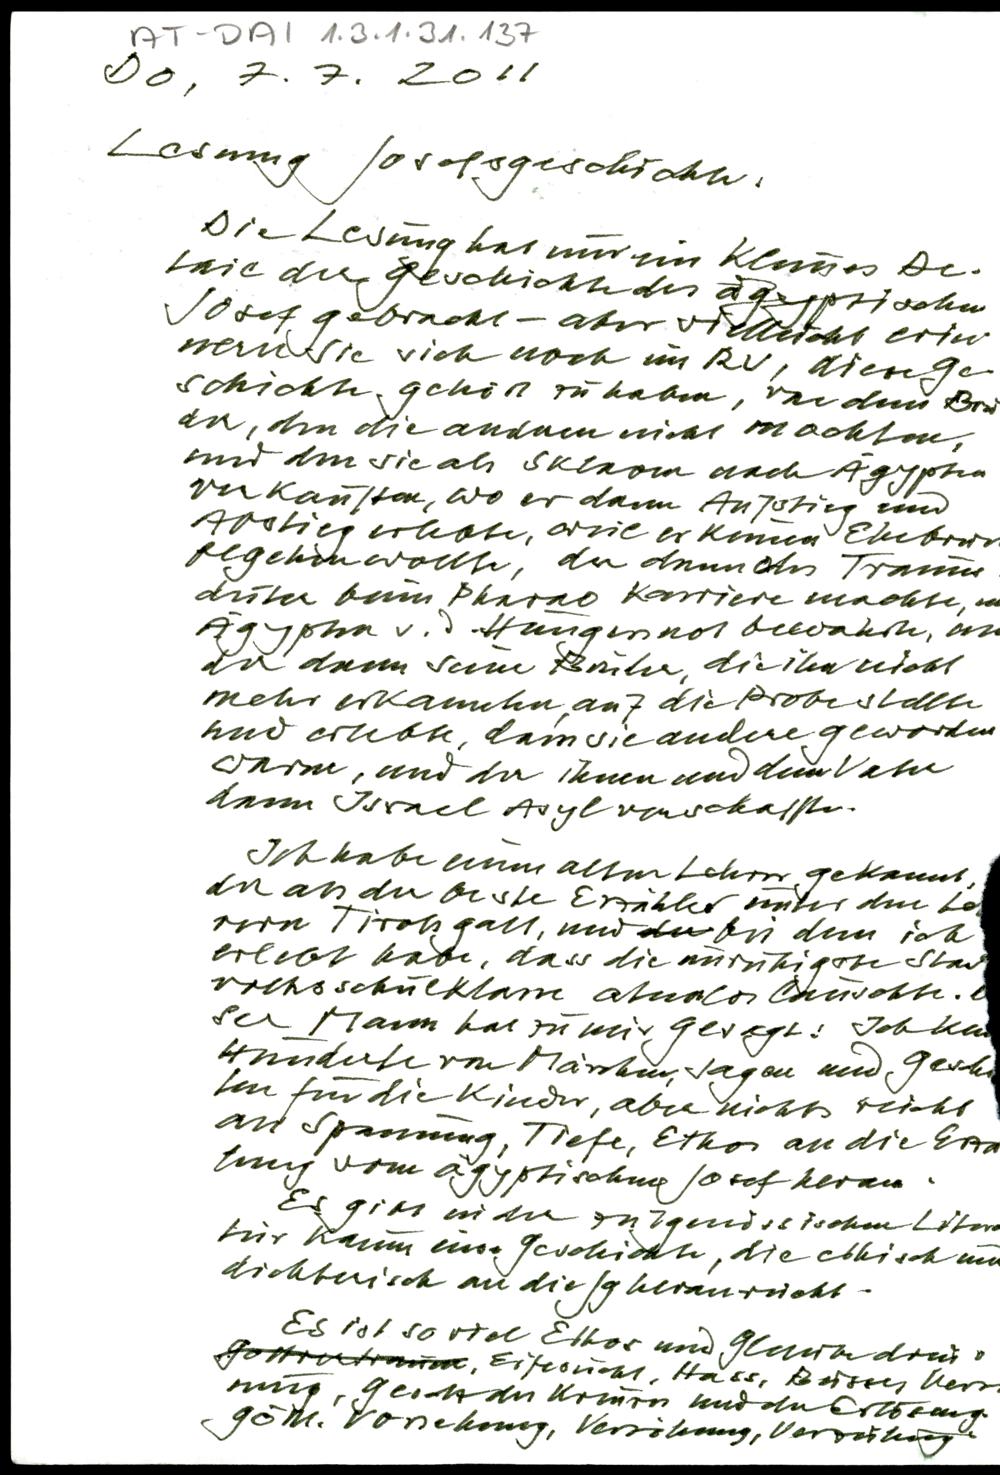 AT-DAI 1.3.1.31.137
Do, 7. 7. 2011
Lesung Josefsgeschichte.
Die Lesung hat nur ein kleines De-
tail der Geschichte des ägyptischen
Josef gebracht – aber vielleicht erin
nern Sie sich noch im RU, diese Ge-
schichte gehört zu haben, von dem Brü
der, den die anderen nicht mochten,
und den sie als Sklaven nach Ägypten
verkauften, wo er dann Aufstieg und
Abstieg erlebte, weil er keinen Ehebru
begehen wollte, der dann als Traum
deuter beim Pharao Karriere machte,
Ägypten v. d. Hungersnot bewahrte, un
der dann seine Brüder, die ihn nicht
mehr erkannten, auf die Probe stellte
und erlebte, dass sie andere geworden
waren, und der ihnen und dem Vater
dann Israel Asyl verschaffte.
Ich habe einen alten Lehrer gekannt,
der als der beste Erzähler unter den Le
rern Tirols galt, und bei dem ich
erlebt habe, dass die unruhigste Stad
volksschulklasse atemlos lauschte.
ser Mann hat zu mir gesagt: Ich ken
Hunderte von Märchen, Sagen und Gesch
ten für die Kinder, aber nichts reicht
an Spannung, Tiefe, Ethos an die Erzä
lung vom ägyptischen Josef heran.
Es gibt in der zeitgenössischen Litera
tur kaum eine Geschichte, die ethisch un
dichterisch an die Jg heranreicht.
Es ist so viel Ethos und Glaube drin:
Gottvertrauen, Eifersucht, Hass,
nung, Gesetz des und der Erlösung
göttl. Vorsehung, Versöhnung, Verzeihung